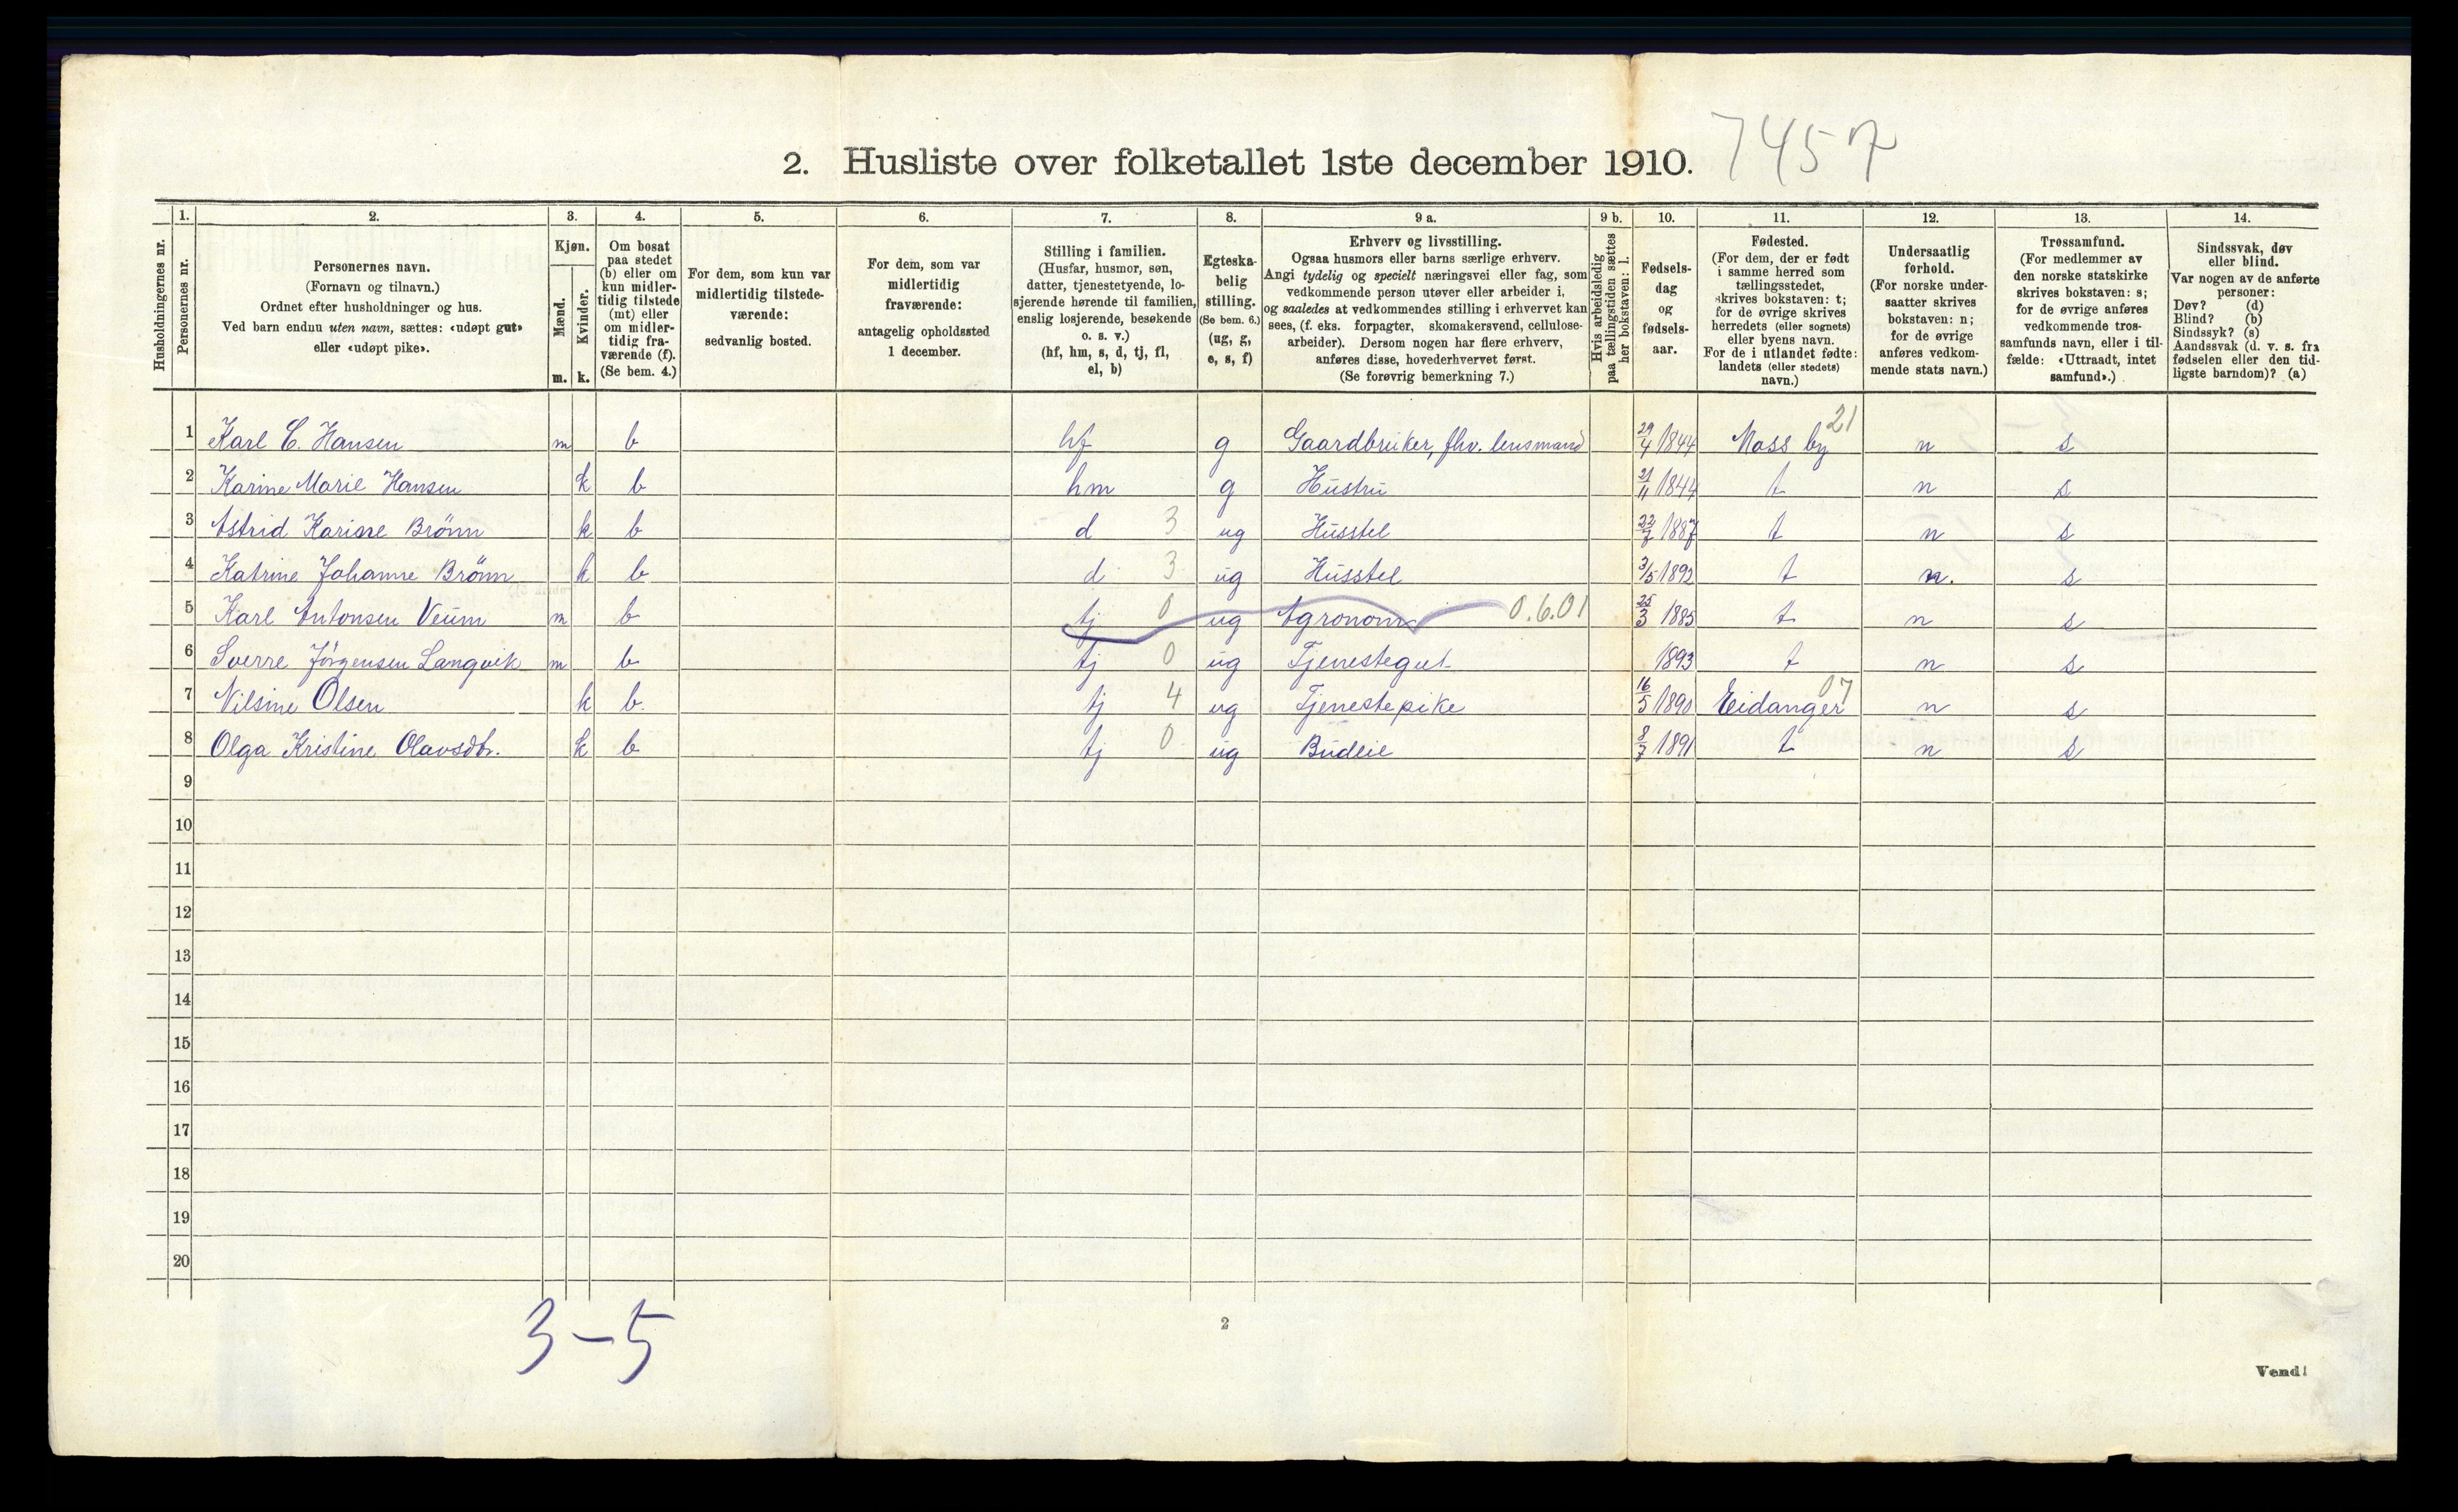 2. Husliste over folketallet 1ste december 1910. 7457
Husholdningernes nr.
1.
Personernes nr.
2.
Personernes navn.
(Fornavn og tilnavn.)
Ordnet efter husholdninger og hus.
Ved barn endnu uten navn, sættes: «udøpt gut»
eller «udøpt pike».
3.
Kjøn.
Mænd.
Kvinder.
m. k.
4.
Om bosat
paa stedet
(b) eller om
kun midler-
tidig tilstede
(mt) eller
om midler-
tidig fra-
værende (f).
(Se bem. 4.)
5.
For dem, som kun var
midlertidig tilstede-
værende:
sedvanlig bosted.
6.
For dem, som var
midlertidig
fraværende:
antagelig opholdssted
1 december.
7.
Stilling i familien.
(Husfar, husmor, søn,
datter, tjenestetyende, lo-
sjerende hørende til familien,
enslig losjerende, besøkende
o. s. v.)
(hf, hm, s, d, tj, fl,
el, b)
8.
Egteska-
belig
stilling.
(Se bem. 6.)
(ug, g,
e, s, f)
9 a.
Erhverv og livsstilling.
Ogsaa husmors eller barns særlige erhverv.
Angi tydelig og specielt næringsvei eller fag, som
vedkommende person utøver eller arbeider i,
og saaledes at vedkommendes stilling i erhvervet kan
sees, (f. eks. forpagter, skomakersvend, cellulose-
arbeider). Dersom nogen har flere erhverv,
anføres disse, hovederhvervet først.
(Se forøvrig bemerkning 7.)
9 b.
Hvis arbeidsledig
paa tællingstiden sættes
her bokstaven: l.
10.
Fødsels-
dag
og
fødsels-
aar.
11.
Fødested.
(For dem, der er født
i samme herred som
tællingsstedet,
skrives bokstaven: t;
for de øvrige skrives
herredets (eller sognets)
eller byens navn.
For de i utlandet fødte:
landets (eller stedets)
navn.)
12.
Undersaatlig
forhold.
(For norske under-
saatter skrives
bokstaven: n;
for de øvrige
anføres vedkom-
mende stats navn.)
13.
Trossamfund.
(For medlemmer av
den norske statskirke
skrives bokstaven: s;
for de øvrige anføres
vedkommende tros-
samfunds navn, eller i til-
fælde: «Uttraadt, intet
samfund».)
14.
Sindssvak, døv
eller blind.
Var nogen av de anførte
personer:
Døv? (d)
Blind? (b)
Sindssyk? (s)
Aandssvak (d. v. s. fra
fødselen eller den tid-
ligste barndom)? (a)
1 Karl C. Hansen m b hf g Gaardbruker, fhv. lensmand 29/4 1844 Moss by 21 n s
2 Karine Marie Hansen k b hm g Hustru 21/11 1844 t n s
3 Astrid Karine Brönn k b d 3 ug Husstel 22/7 1887 t n s
4 Katrine Johanne Brönn k b d 3 ug Husstel 3/5 1892 t n. s
5 Karl Antonsen Veum m b tj 0 ug Agronom 0.6.01 25/3 1885 t n s
6 Sverre Jörgensen Langvik m b tj 0 ug Tjenestegut 1893 t n s
7 Nilsine Olsen k b. tj 4 ug Tjenestepike 16/5 1890 Eidanger 07 n s
8 Olga Kristine Olavsdtr. k b tj 0 ug Budeie 8/7 1891 t n s
9
10
11
12
13
14
15
16
17
18
19
20
3-5
2
Vend!